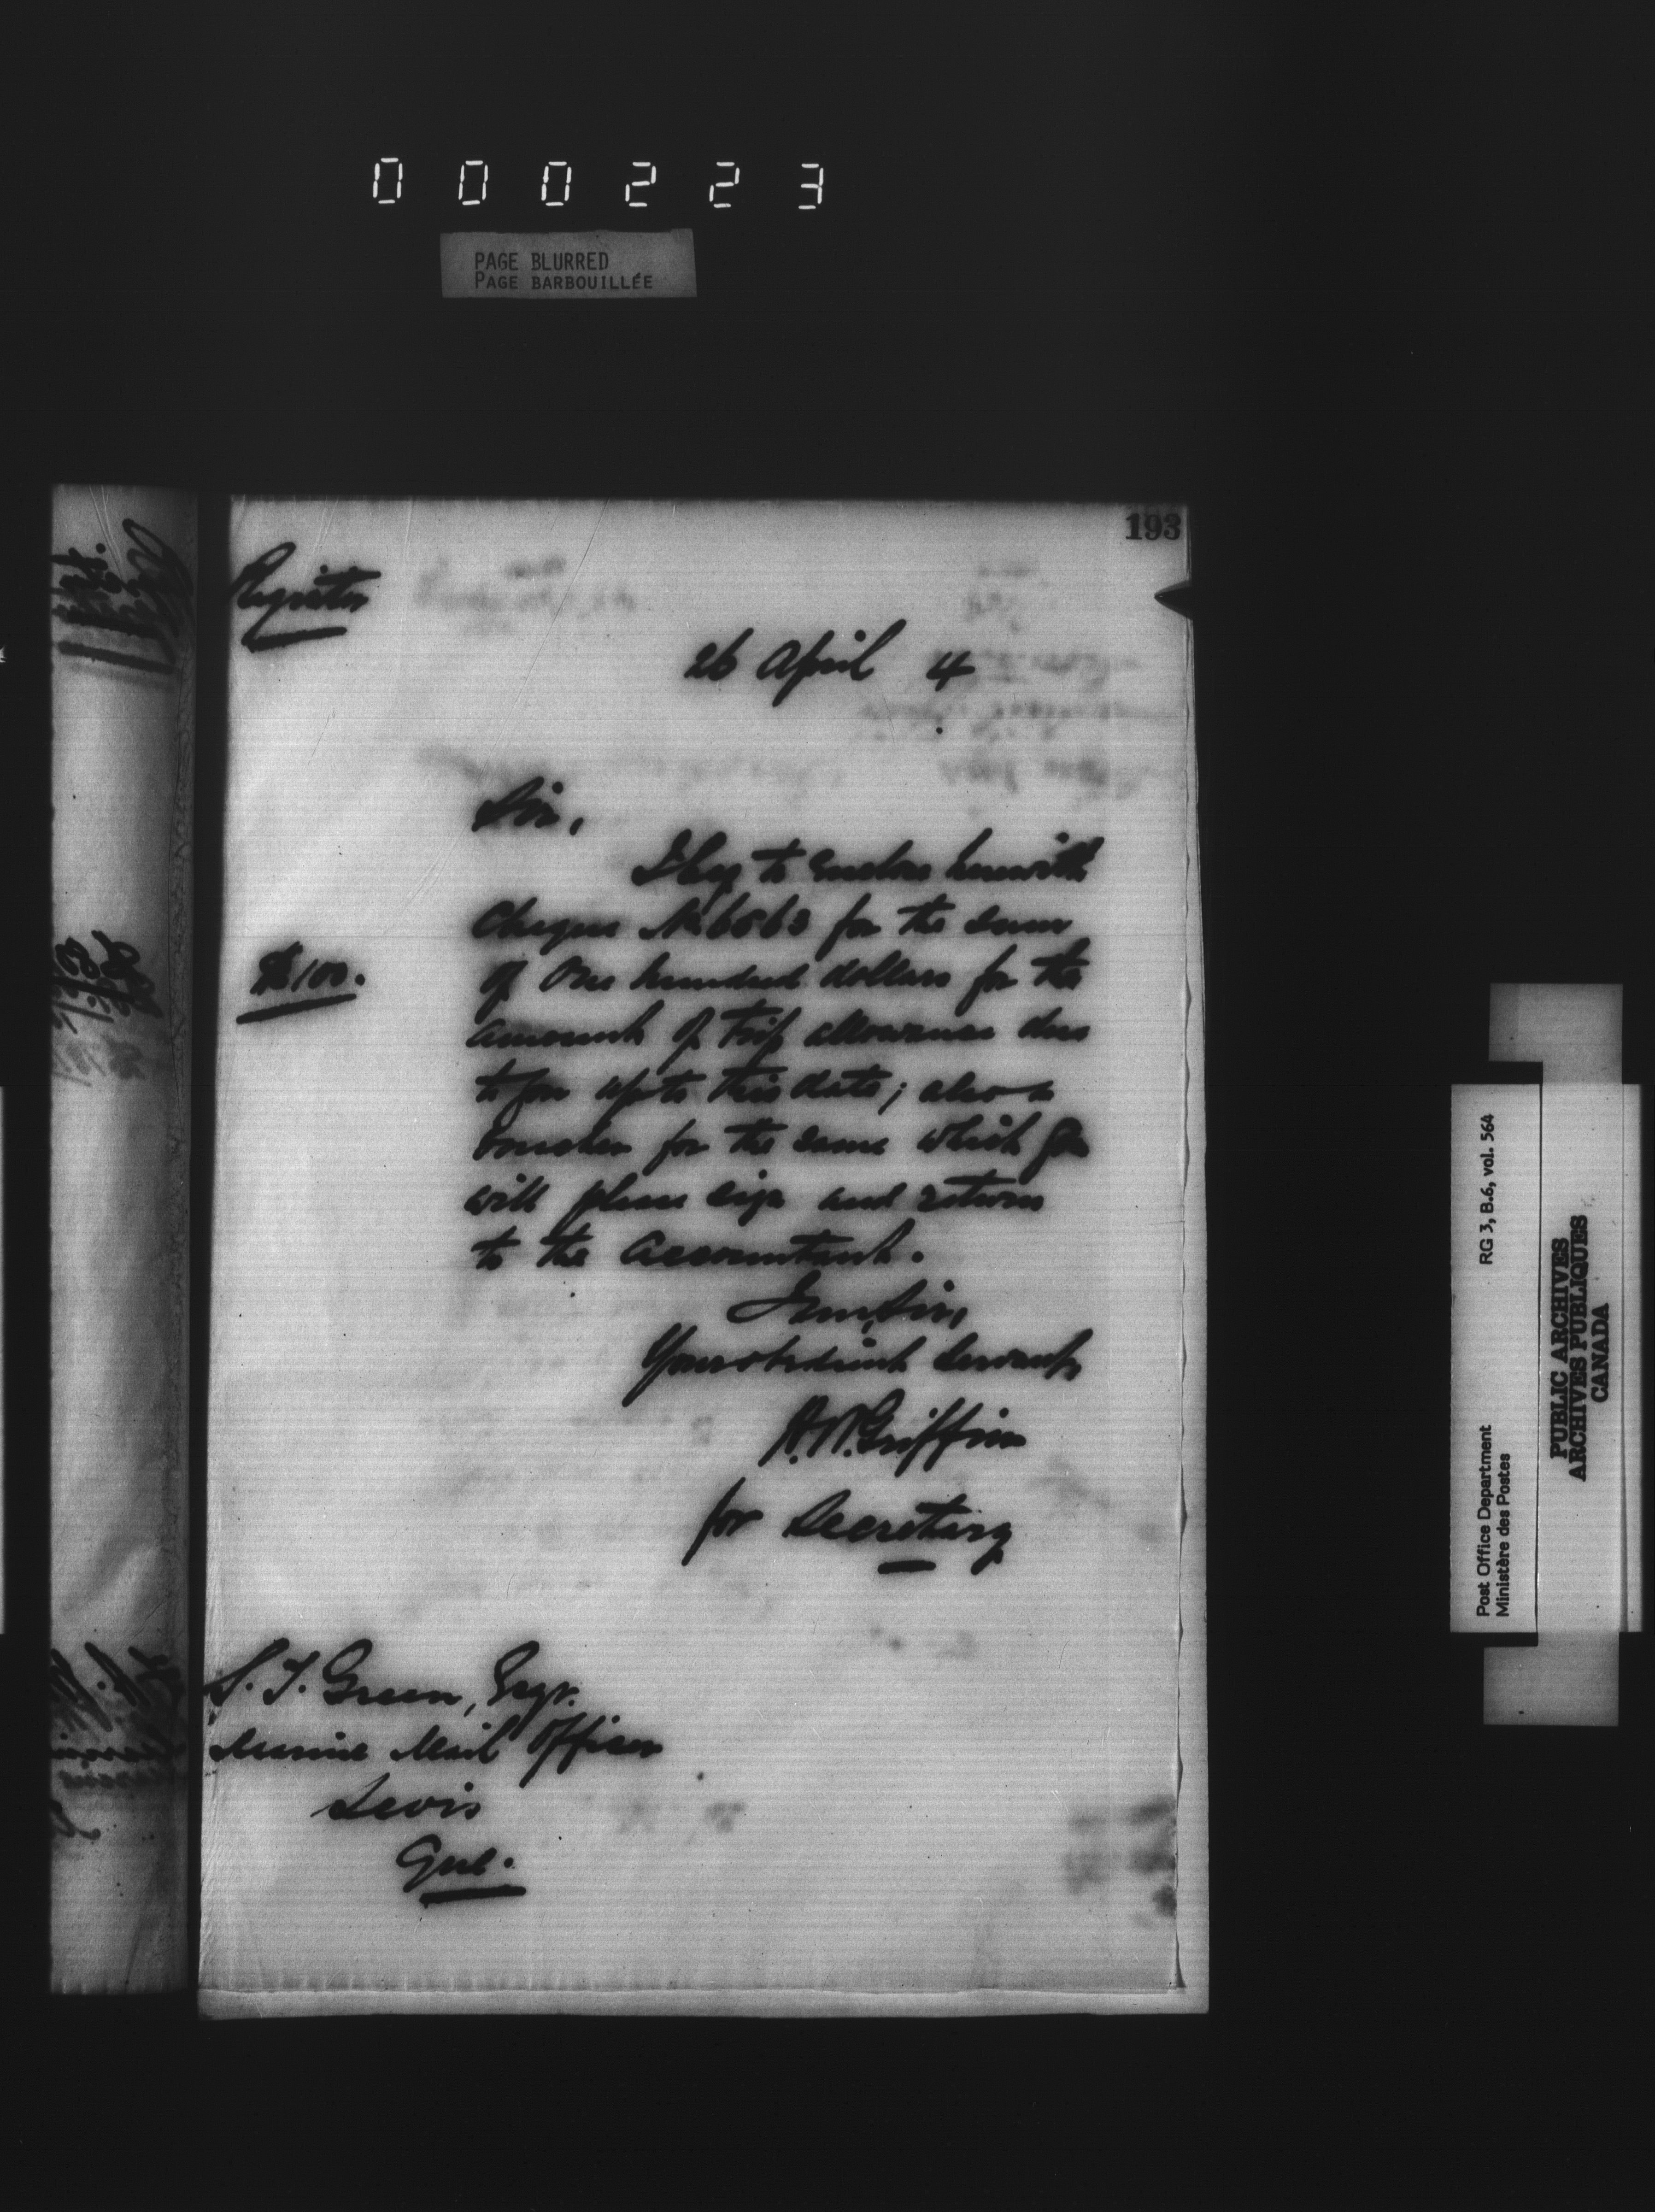 000223
PAGE BLURRED
PAGE BARBOUILLÉE
193
Register
26 April 4
Sir,
I beg to enclose herewith
Cheque No 6563 for the sum
$100.
of One hundred dollars for the
amount of trip allowance due
to you up to this date; also a
voucher for the same which you
will please sign and return
to the Accountant.
I am, Sir,
Your obedient Servant,
for Secretary
S. T. Green, Esqr.
Marine Mail Officer
Levis
Que.
Post Office Department
Ministère des Postes
RG 3, B.6, vol. 564
PUBLIC ARCHIVES
ARCHIVES PUBLIQUES
CANADA